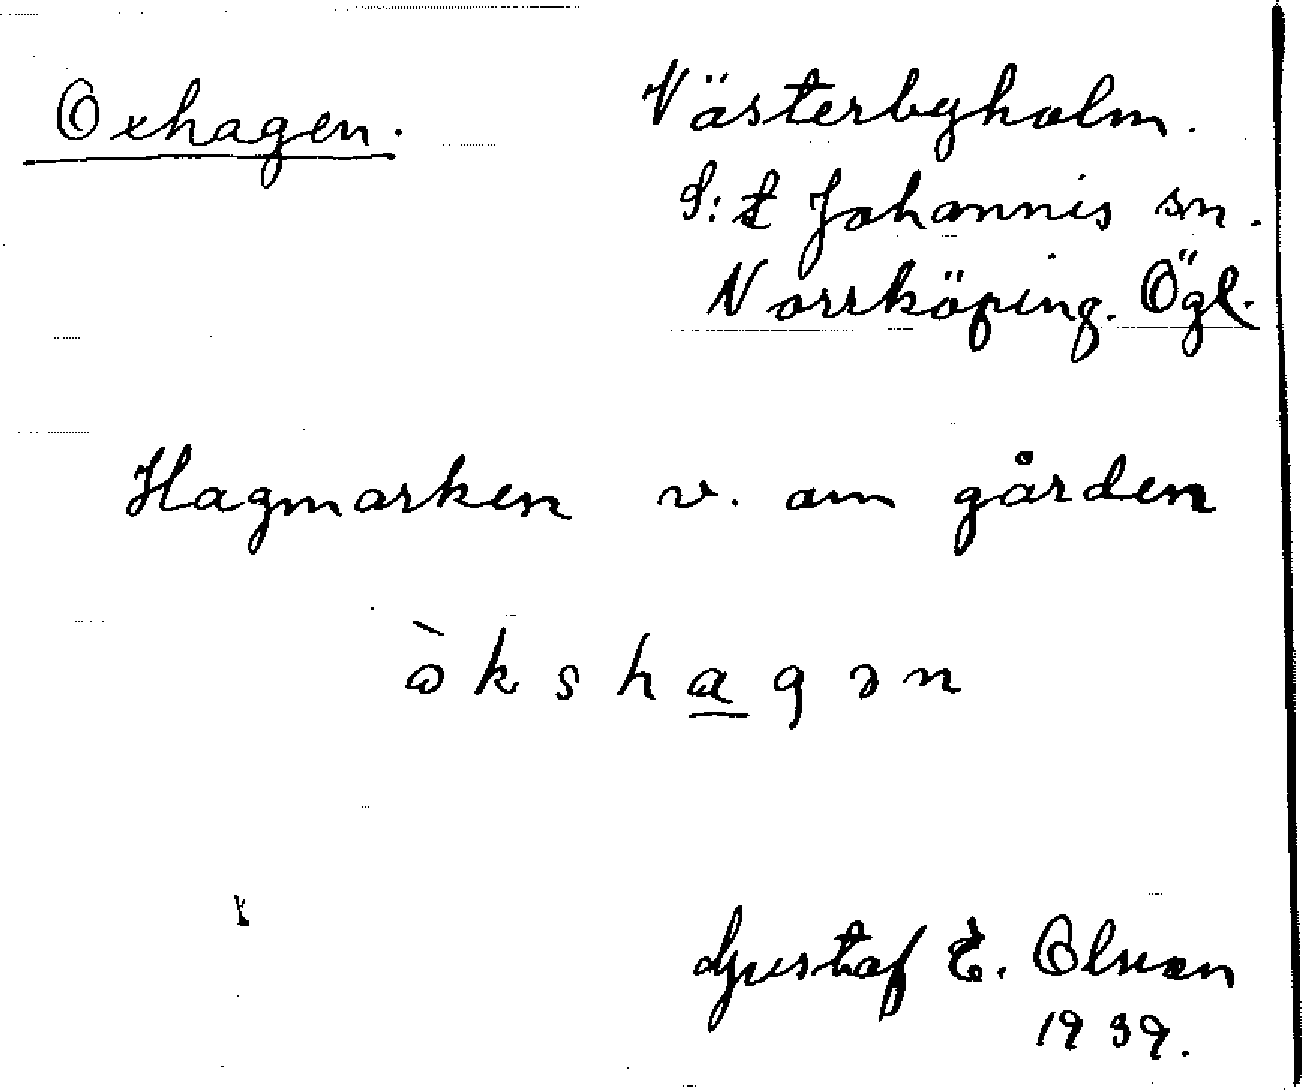 Oxhagen.
Västerbyholm.
S:t Johannis sn.
Norrköping. Ögl.
Hagmarken v. om gården
òkshagən
Gustaf E. Olsson
1939.